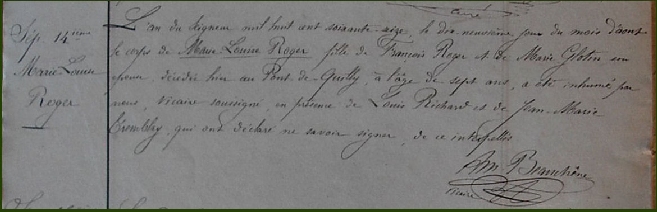 Sép. 14ème
Marie Louise
Roger
L'an du Seigneur mil huit cent soixante-seize, le dix-neuvième jour du mois d'août
le corps de Marie Louise Roger fille de François Roger et de Marie Gloton son
épouse décédée hier au Pont de Guilly, à l'âge de sept ans, a été inhumé par
nous, Vicaire soussigné, en présence de Louis Richard et de Jean-Marie
Tremblay, qui ont déclaré ne savoir signer, de ce interpellés
Am. Beauchêne
Vicaire